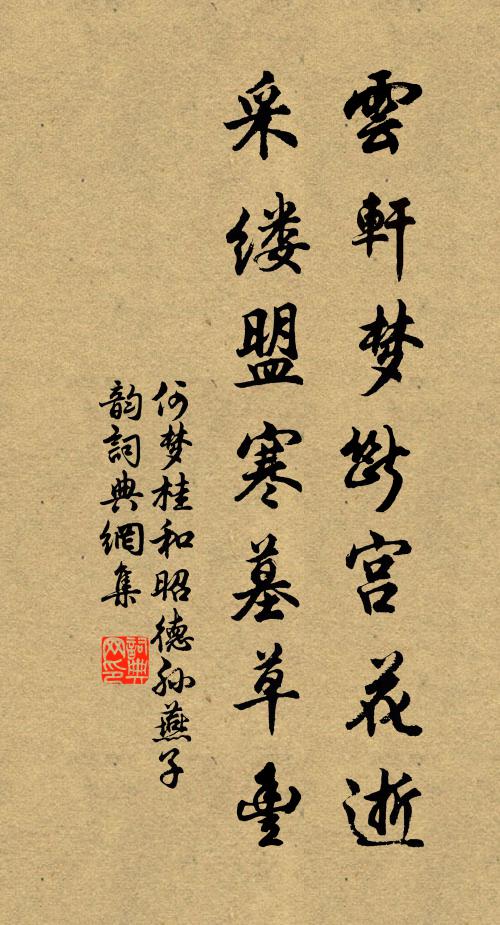 雲軒梦斷宫花逝
采缕盟寒墓草豐
何梦桂和昭德孙燕子
韵詞典網集
詞典
网印